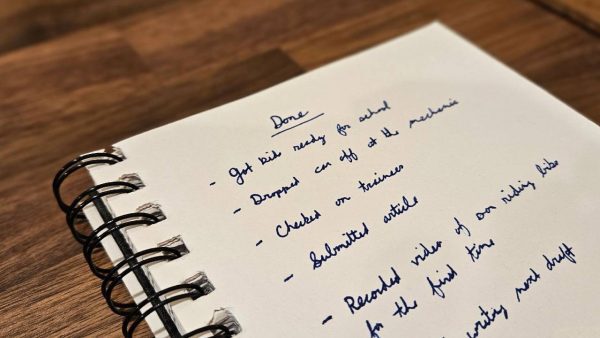 Done
- Got kids ready for school
- Dropped car off at the mechanic
- Checked on trainees
- Submitted article
- Recorded video of son riding bike
for the first time
writing next draft